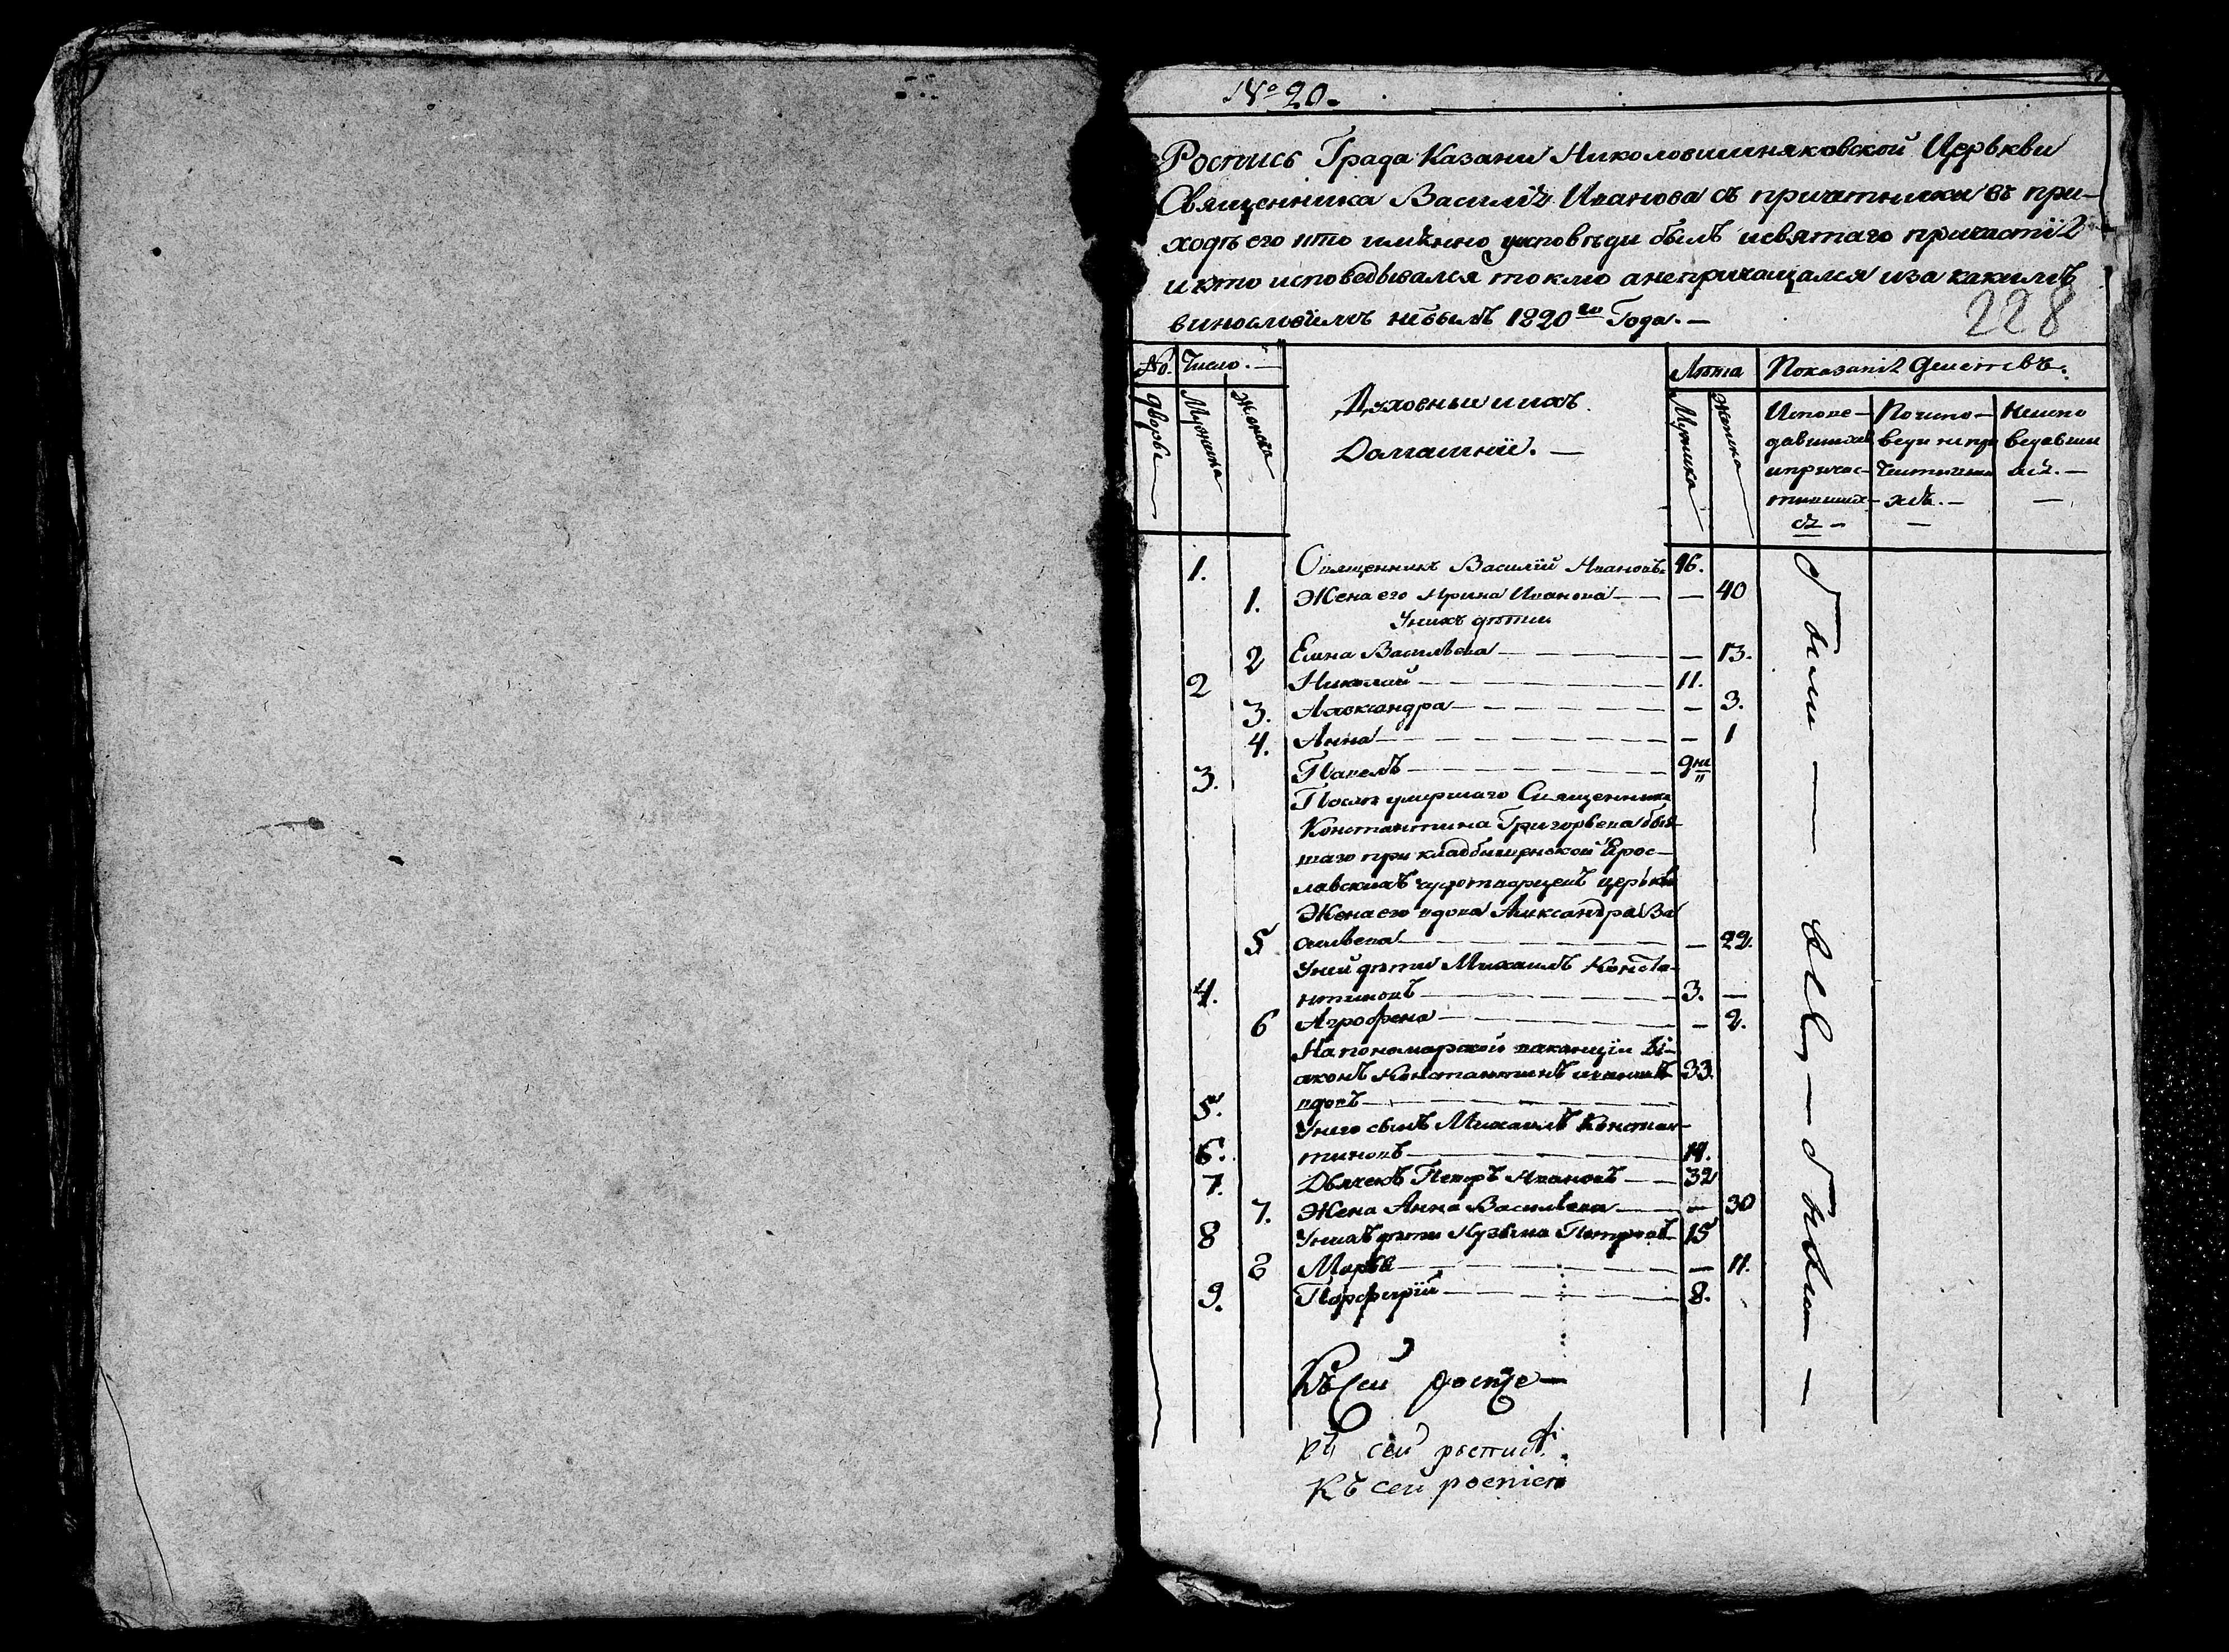 № 20.
Роспись Града Казани Николовишняковской Церькви
Священника Василія Иванова съ причтники въ при-
ходѣ его кто имѣнно уисповѣди былъ исвятаго причастія
икто исповедывался токмо анепричащался иза какимъ
винословіимъ небылъ 1820го Года. —
228
№. Число. — Лѣта Показанія Действъ.
дворы Мужеска Женска Духовныи ихъ Домашнїи. — Мужеска Женска
Испове- давшихся ипричас- тивших- ся —
Поиспо- веди непри
Неиспо ведавши ся. —
1. Священникъ Василій Ивановъ 46.
1. Жена его Ирина Иванова — — 40
Унихъ дѣти
2 Елена Васильева — — 13.
2 Николай — 11.
3. Александра — — 3.
4. Анна — — 1
3. Павелъ — 9 не
Послѣ умершаго Священника
Константина Григорьева быв-
шаго при кладбищенской Ерос-
лавскихъ чудотворцевъ церькви
Жена его вдова Александра Ва
5 сильева — — 22.
Уней дѣти Михаилъ Конста-
4. нтиновъ — 3. —
6 Агрофена — — 2.
Напономарской ваканціи Ді-
аконъ Константинъ Ивановъ 33.
5. вдовъ —
Унего сынъ Михаилъ Констан-
6. тиновъ — 11.
7. Дьячекъ Петръ Ивановъ — 32
7. Жена Анна Васильева — — 30
8 Унихъ дѣти Кузьма Петровъ 15
8 Марья — — 11.
9. Порфирій — 8.
были — всѣ — были —
Къ сей роспѣ —
къ сей росписѣ.
Къ сей роспіси